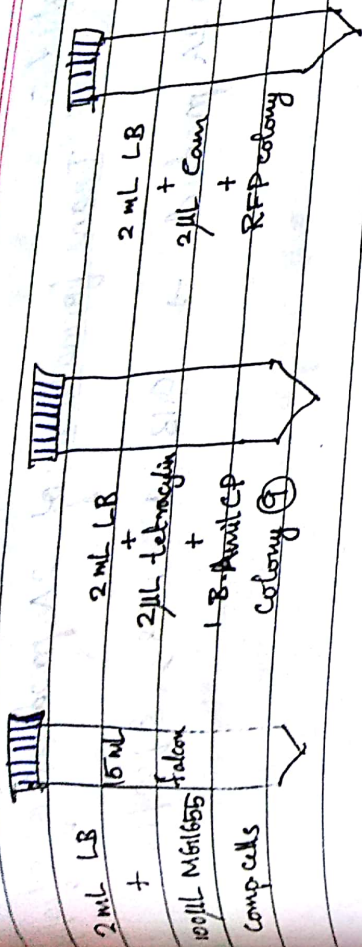 2 mL LB
+
100µL MG1655
comp cells
15 mL
falcon
2 mL LB
+
2µL tetracyclin
+
1 B-AmilCP
colony ⑨
2 mL LB
+
2µL Cam
+
RFP colony